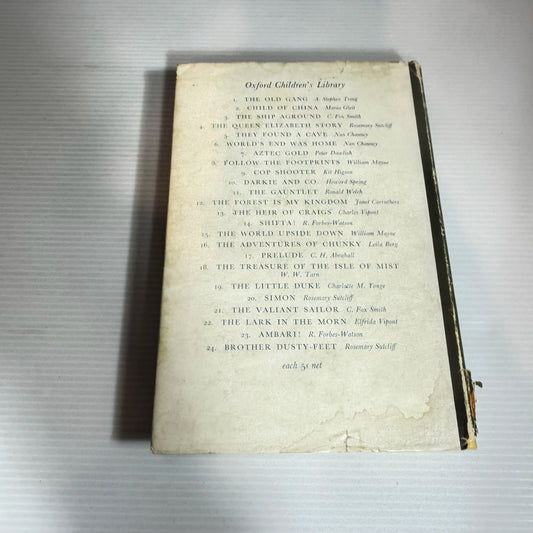 Oxford Children's Library
1. THE OLD GANG A. Stephen Tring
2. CHILD OF CHINA Marea Gleit
3. THE SHIP AGROUND C. Fox Smith
4. THE QUEEN ELIZABETH STORY Rosemary Sutcliff
5. THEY FOUND A CAVE Nan Chauncy
6. WORLD'S END WAS HOME Nan Chauncy
7. AZTEC GOLD Peter Dawlish
8. FOLLOW THE FOOTPRINTS William Mayne
9. COP SHOOTER Kit Higson
10. DARKIE AND CO. Howard Spring
11. THE GAUNTLET Ronald Welch
12. THE FOREST IS MY KINGDOM Janet Carruthers
13. THE HEIR OF CRAIGS Charles Vipont
14. SHIFTA! R. Forbes-Watson
15. THE WORLD UPSIDE DOWN William Mayne
16. THE ADVENTURES OF CHUNKY Leila Berg
17. PRELUDE C. H. Abrahall
18. THE TREASURE OF THE ISLE OF MIST
W. W. Tarn
19. THE LITTLE DUKE Charlotte M. Yonge
20. SIMON Rosemary Sutcliff
21. THE VALIANT SAILOR C. Fox Smith
22. THE LARK IN THE MORN Elfrida Vipont
23. AMBARI! R. Forbes-Watson
24. BROTHER DUSTY-FEET Rosemary Sutcliff
each 5s net